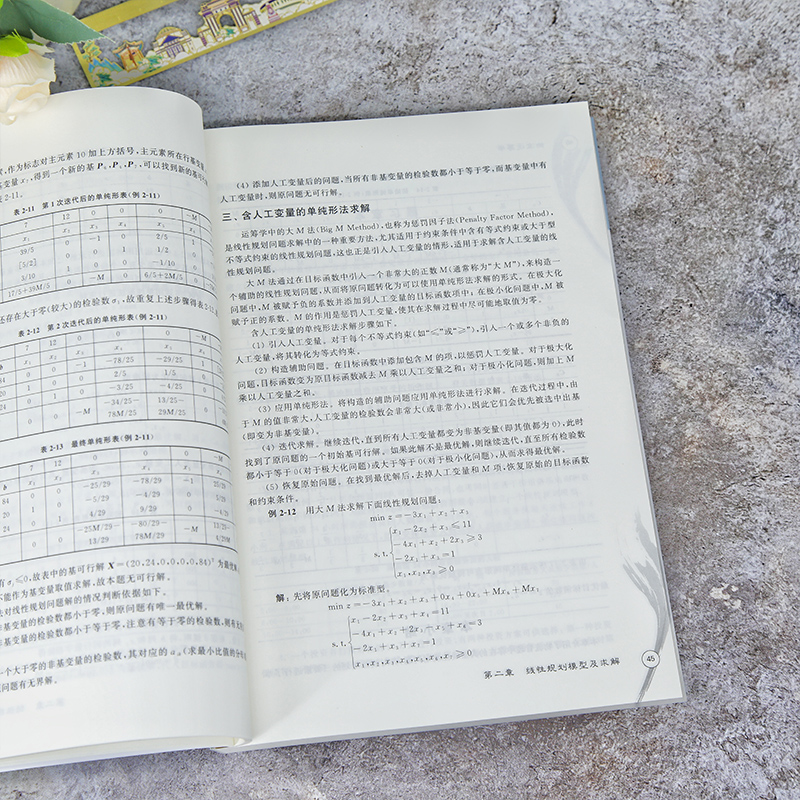 ,作为标志对主元素10加上方括号,主元素所在行基变量
得到一个新的基P
可以找到新的基可行
表2-11 第1次迭代后的单纯形表(例2-11)
7 12 0 0 0 -M
39/5 0 -1 0 2/5
[5/2] 0 0 1 1/2 0
3/10 1 0 -1/10 0
17/5+39M/5 0 0 6/5+2M/5
还存在大于零(较大)的检验数σ
故重复上述步骤得表2-12
表2-12 第2次迭代后的单纯形表(例2-11)
7 12 0 0 0
x₁ x₂ x₃ x₄ x₅
84 0 0 -1 -78/25 -29/25
20 1 0 0 2/5 1/5
24 0 1 0 -3/25 -4/25
0 0 -M -34/25- 13/25-
78M/25 29M/25
表2-13 最终单纯形表(例2-11)
b 7 12 0 0 0 -M
x₁ x₂
84 0 0 -25/29 -78/29 -1 25/29
20 1 0 -5/29 -4/29 0 5/29
24 0 1 4/29 9/29 0
0 0 -25M/29- -80/29- -M 15/25-
13/29 78M/29 4M/29
有σⱼ≤0,故表中的基可行解X=(20,24,0,0,0,0,84)ᵀ为最优
不能作为基变量取值求解,故本题无可行解。
法对线性规划问题解的情况判断依据如下。
基变量的检验数都小于零,则原问题有唯一最优解。
基变量的检验数都小于等于零,注意有等于零的检验数,则有无
一个大于零的非基变量的检验数,其对应的
(求最小比值的分
问题有无界解。
(4) 添加人工变量后的问题,当所有非基变量的检验数都小于等于零,而基变量中有
人工变量时,则原问题无可行解。
三、含人工变量的单纯形法求解
运筹学中的大M法(Big M Method),也称为惩罚因子法(Penalty Factor Method),
是线性规划问题求解中的一种重要方法,尤其适用于约束条件中含有等式约束或大于型
不等式约束的线性规划问题,这也正是引入人工变量的情形,适用于求解含人工变量的线
性规划问题。
大M法通过在目标函数中引入一个非常大的正数M(通常称为“大M”),来构造一
个辅助的线性规划问题,从而将原问题转化为可以使用单纯形法求解的形式。在极大化
问题中,M被赋予负的系数并添加到人工变量的目标函数项中;在极小化问题中,M被
赋予正的系数。M的作用是惩罚人工变量,使其在求解过程中尽可能地取值为零。
含人工变量的单纯形法求解步骤如下。
(1) 引入人工变量。对于每个不等式约束(如“≤”或“≥”),引入一个或多个非负的
人工变量,将其转化为等式约束。
(2) 构造辅助问题。在目标函数中添加包含M的项,以惩罚人工变量。对于极大化
问题,目标函数变为原目标函数减去M乘以人工变量之和;对于极小化问题,则加上M
乘以人工变量之和。
(3) 应用单纯形法。将构造的辅助问题应用单纯形法进行求解。在迭代过程中,由
于M的值非常大,人工变量的检验数会非常大(或非常小),因此它们会优先被选中出基
(即变为非基变量)。
(4) 迭代求解。继续迭代,直到所有人工变量都变为非基变量(即其值都为0),此时
找到了原问题的一个初始基可行解。如果此解不是最优解,则继续迭代,直至所有检验数
都小于等于0(对于极大化问题)或大于等于0(对于极小化问题),从而求得最优解。
(5) 恢复原始问题。在找到最优解后,去掉人工变量和M项,恢复原始的目标函数
和约束条件。
例2-12 用大M法求解下面线性规划问题:
min z=-3x₁+x₂+x₃
x₁-2x₂+x₃≤11
-4x₁+x₂+2x₃≥3
s.t.
-2x₁+x₃=1
x₁,x₂,x₃≥0
解:先将原问题化为标准型。
min z=-3x₁+x₂+x₃+0x₄+0x₅+Mx₆+Mx₇
x₁-2x₂+x₃+x₄=11
-4x₁+x₂+2x₃-x₅+x₆=3
s.t.
-2x₁+x₃+x₇=1
x₁,x₂,x₃,x₄,x₅,x₆,x₇≥0
第二章 线性规划模型及求解
45